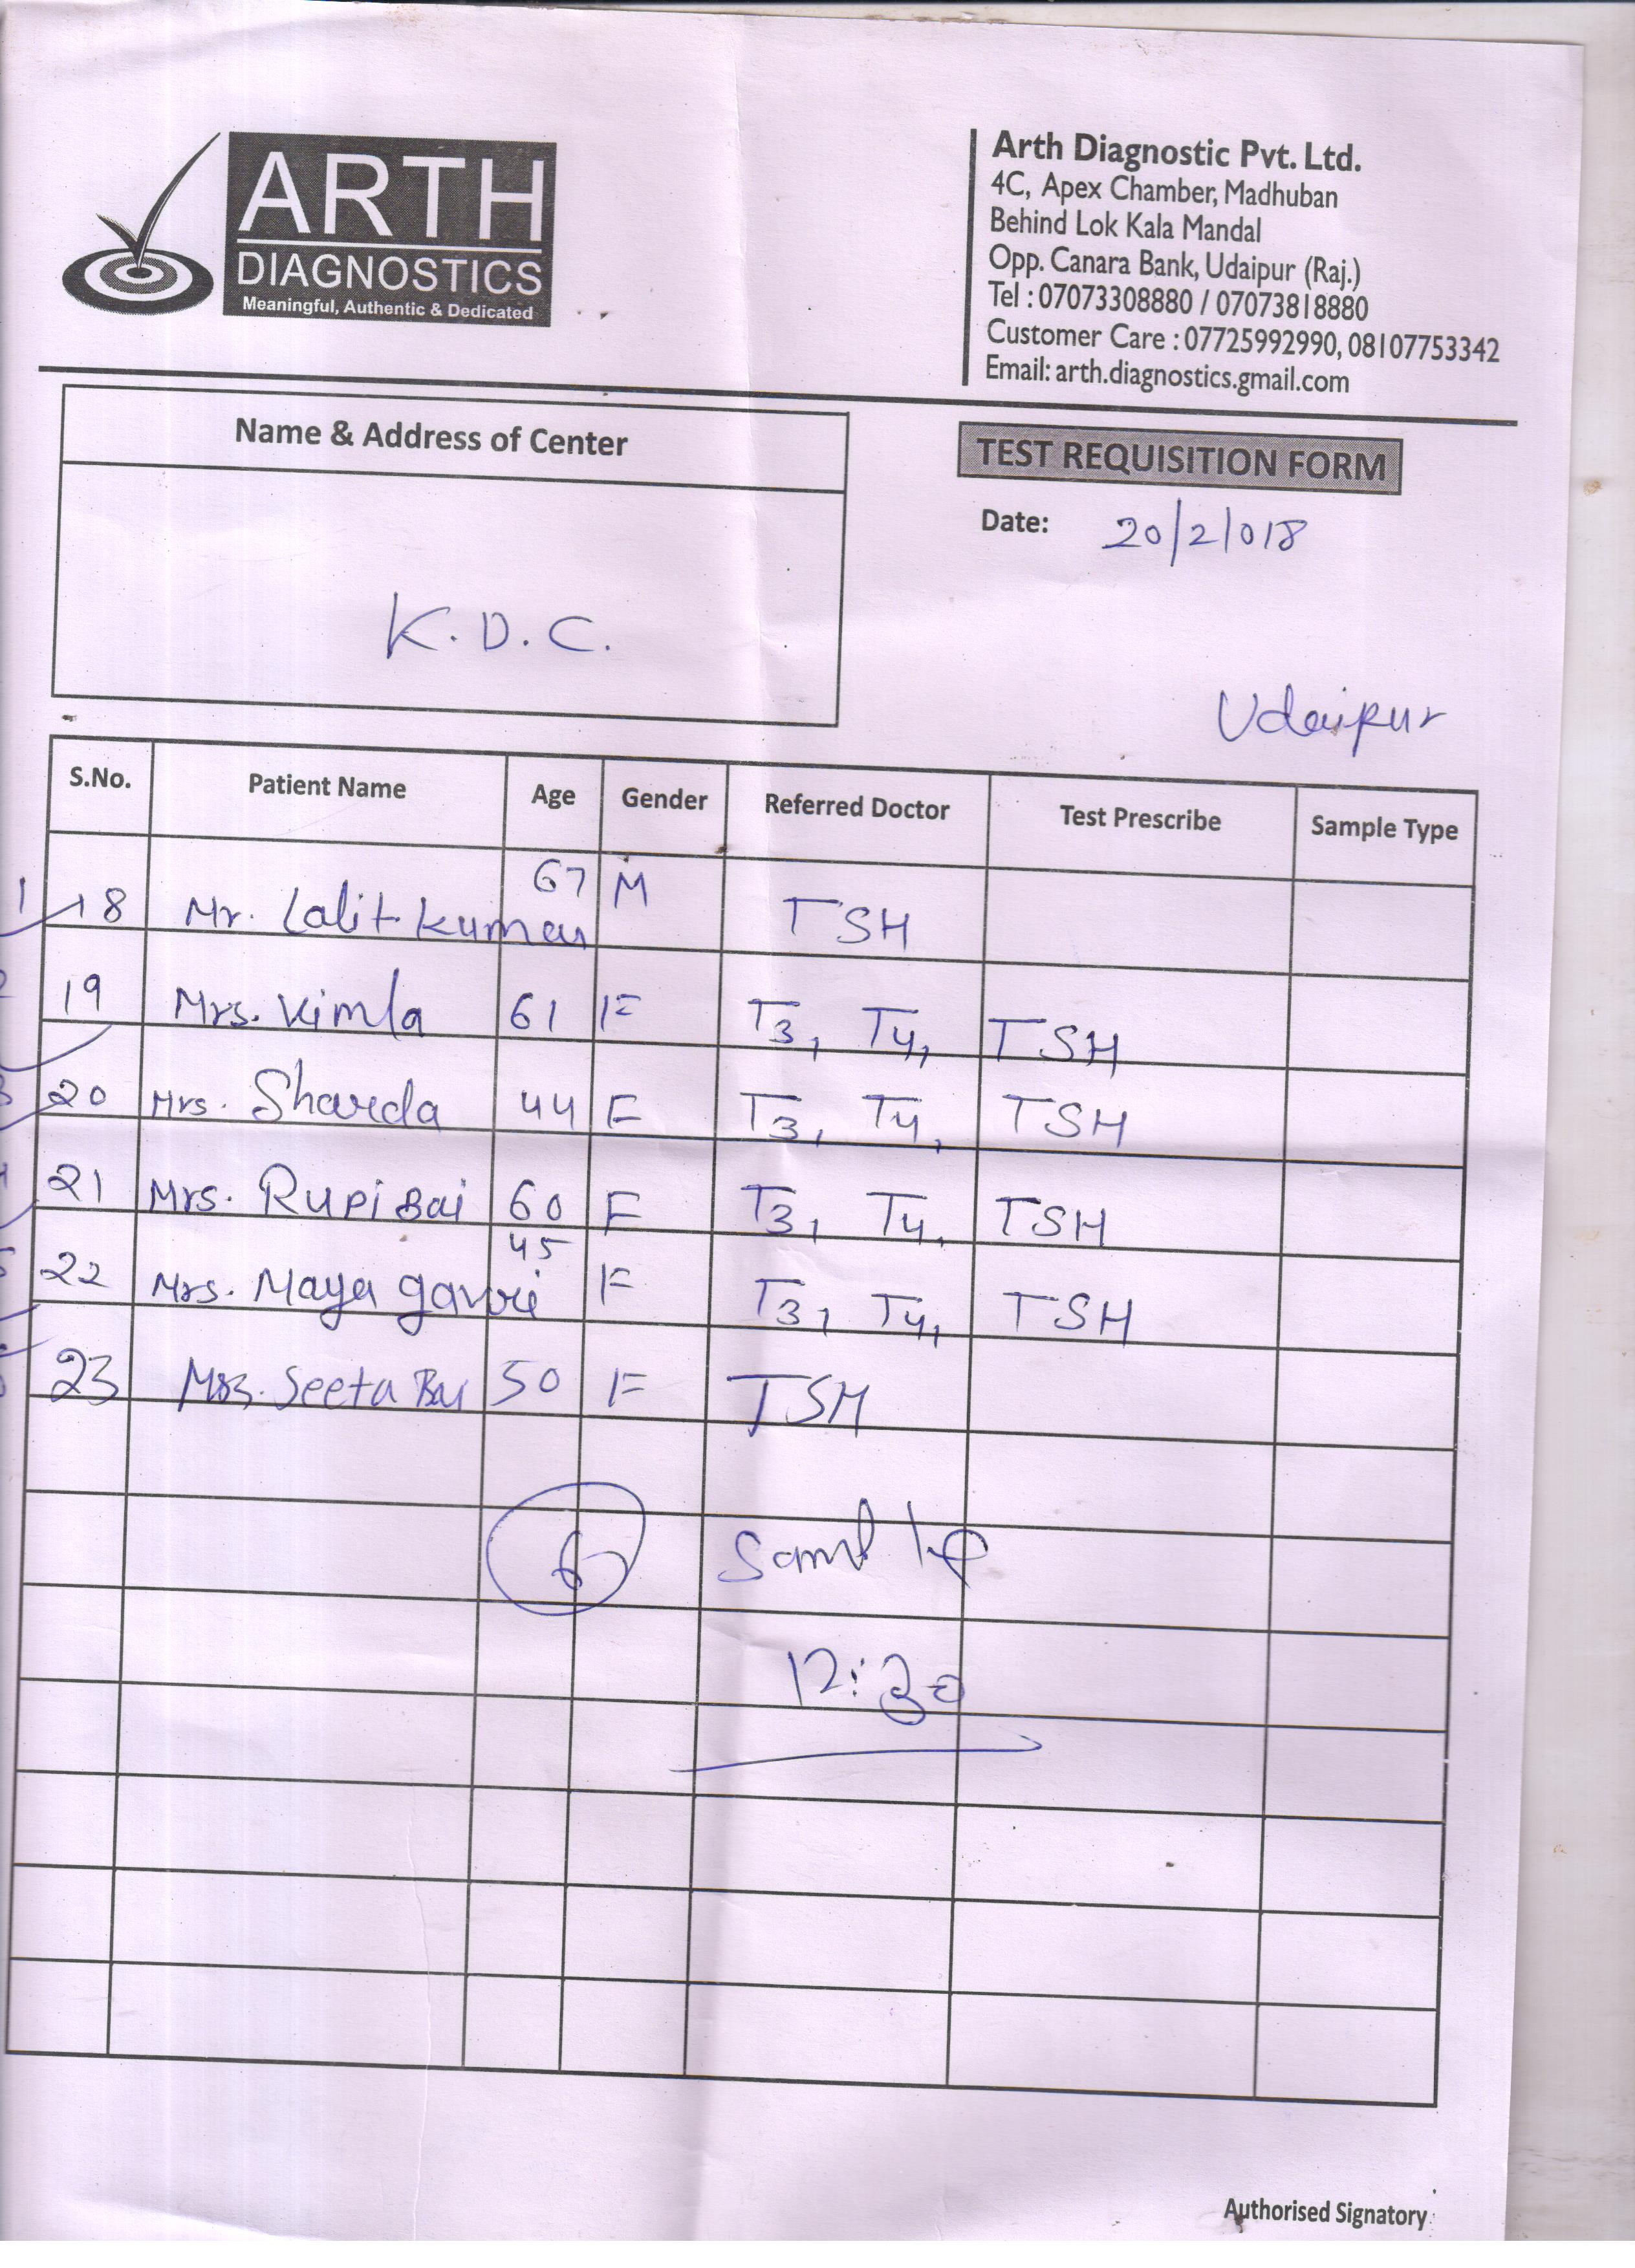 ARTH
DIAGNOSTICS
Meaningful, Authentic & Dedicated
Arth Diagnostic Pvt. Ltd.
4C, Apex Chamber, Madhuban
Behind Lok Kala Mandal
Opp. Canara Bank, Udaipur (Raj.)
Tel : 07073308880 / 07073818880
Customer Care : 07725992990, 08107753342
Email: arth.diagnostics.gmail.com
Name & Address of Center
K.D.C.
TEST REQUISITION FORM
Date: 20/2/018
Udaipur
S.No. Patient Name Age Gender Referred Doctor Test Prescribe Sample Type
1 18 Mr. Lalit kumar 67 M TSH
19 Mrs. Vimla 61 F T3, T4, TSH
20 Mrs. Sharda 44 F T3, T4, TSH
21 Mrs. Rupi Bai 60 F T3, T4, TSH
22 Mrs. Maya gavri 45 F T3, T4, TSH
23 Mrs. Seeta Bai 50 F TSH
6 Sample
12:30
Authorised Signatory